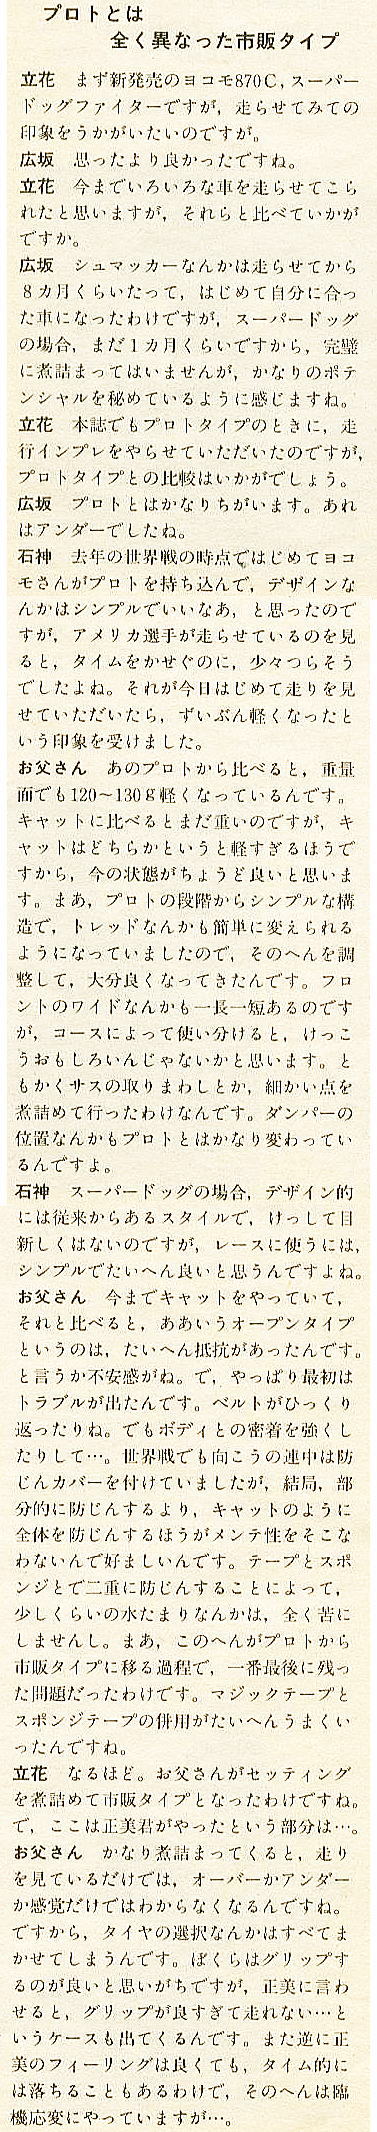 プロトとは
全く異なった市販タイプ
立花　まず新発売のヨコモ870C，スーパー
ドッグファイターですが，走らせてみての
印象をうかがいたいのですが。
広坂　思ったより良かったですね。
立花　今までいろいろな車を走らせてこら
れたと思いますが，それらと比べていかが
ですか。
広坂　シュマッカーなんかは走らせてから
8カ月くらいたって，はじめて自分に合っ
た車になったわけですが，スーパードッグ
の場合，まだ1カ月くらいですから，完璧
に煮詰まってはいませんが，かなりのポテ
ンシャルを秘めているように感じますね。
立花　本誌でもプロトタイプのときに，走
行インプレをやらせていただいたのですが，
プロトタイプとの比較はいかがでしょう。
広坂　プロトとはかなりちがいます。あれ
はアンダーでしたね。
石神　去年の世界戦の時点ではじめてヨコ
モさんがプロトを持ち込んで，デザインな
んかはシンプルでいいなあ，と思ったので
すが，アメリカ選手が走らせているのを見
ると，タイムをかせぐのに，少々つらそう
でしたよね。それが今日はじめて走りを見
せていただいたら，ずいぶん軽くなったと
いう印象を受けました。
お父さん　あのプロトから比べると，重量
面でも120〜130g軽くなっているんです。
キャットに比べるとまだ重いのですが，キ
ャットはどちらかというと軽すぎるほうで
すから，今の状態がちょうど良いと思いま
す。まあ，プロトの段階からシンプルな構
造で，トレッドなんかも簡単に変えられる
ようになっていましたので，そのへんを調
整して，大分良くなってきたんです。フロ
ントのワイドなんかも一長一短あるのです
が，コースによって使い分けると，けっこ
うおもしろいんじゃないかと思います。と
もかくサスの取りまわしとか，細かい点を
煮詰めて行ったわけなんです。ダンパーの
位置なんかもプロトとはかなり変わってい
るんですよ。
石神　スーパードッグの場合，デザイン的
には従来からあるスタイルで，けっして目
新しくはないのですが，レースに使うには，
シンプルでたいへん良いと思うんですよね。
お父さん　今までキャットをやっていて，
それと比べると，ああいうオープンタイプ
というのは，たいへん抵抗があったんです。
と言うか不安感がね。で，やっぱり最初は
トラブルが出たんです。ベルトがひっくり
返ったりね。でもボディとの密着を強くし
たりして…。世界戦でも向こうの連中は防
じんカバーを付けていましたが，結局，部
分的に防じんするより，キャットのように
全体を防じんするほうがメンテ性をそこな
わないんで好ましいんです。テープとスポ
ンジとで二重に防じんすることによって，
少しくらいの水たまりなんかは，全く苦に
しませんし。まあ，このへんがプロトから
市販タイプに移る過程で，一番最後に残っ
た問題だったわけです。マジックテープと
スポンジテープの併用がたいへんうまくい
ったんですね。
立花　なるほど。お父さんがセッティング
を煮詰めて市販タイプとなったわけですね。
で，ここは正美君がやったという部分は…。
お父さん　かなり煮詰まってくると，走り
を見ているだけでは，オーバーかアンダー
か感覚だけではわからなくなるんですね。
ですから，タイヤの選択なんかはすべてま
かせてしまうんです。ぼくらはグリップす
るのが良いと思いがちですが，正美に言わ
せると，グリップが良すぎて走れない…と
いうケースも出てくるんです。また逆に正
美のフィーリングは良くても，タイム的に
は落ちることもあるわけで，そのへんは臨
機応変にやっていますが…。